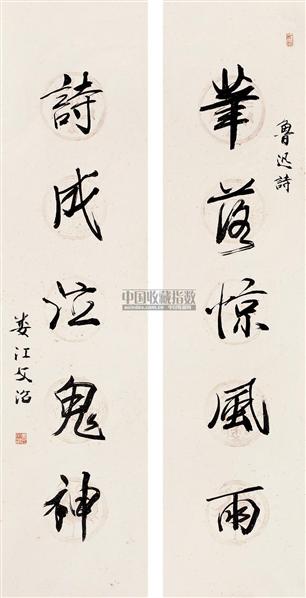 魯迅詩
筆落惊風雨
詩成泣鬼神
婁江文治
中国收藏指数